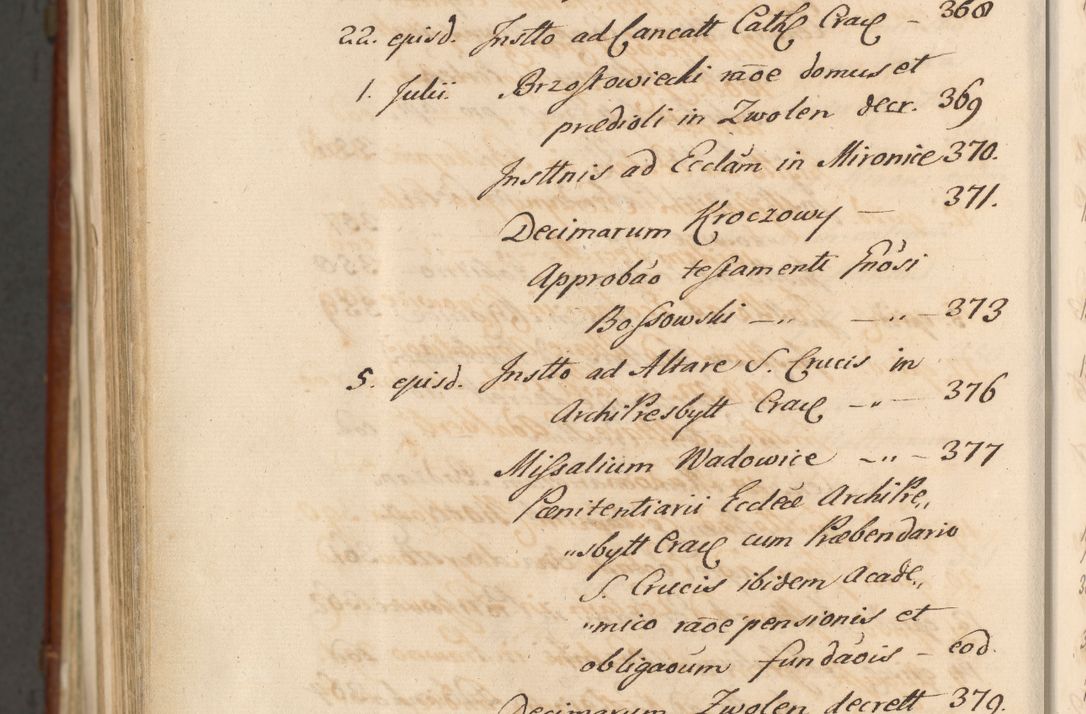 22. episd. Insttō ad Cancatt Cath Crac – 368
1. Julii. Brzostowiecki rāōe domus et
prædioli in Zwolen decr. 369
Insttnis ad Ecclām in Mironice 370.
Decimarum Kroczowy — 371.
Approbāo testamenti Gnōsi
Bossowski — „ — „ — 373
5. episd. Insttō ad Altare S. Crucis in
ArchiPresbytt Crac — „ — 376
Missalium Wadowice – „ – 377
Pœnitentiarii Eccleæ ArchiPre„
„sbytt Crac cum Præbendario
S. Crucis ibidem Acade„
„mico rāōe pensionis et
obligāoum fundāois – eod.
Decimarum Zwolen decrett 379.